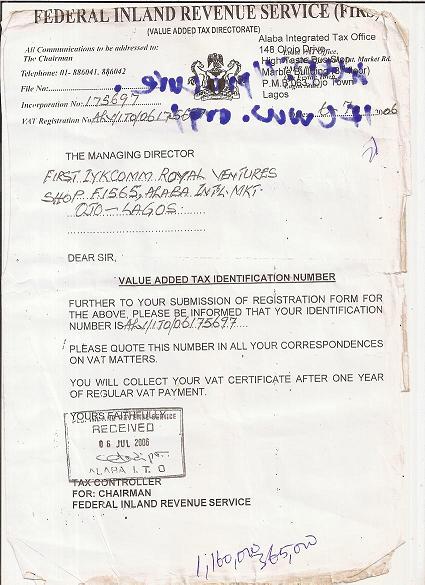 FEDERAL INLAND REVENUE SERVICE (FIRS)
(VALUE ADDED TAX DIRECTORATE)
All Communications to be addressed to:
The Chairman
Telephone: 01- 886041, 886042
File No:
Incorporation No: 175697
VAT Registration No.
Alaba Integrated Tax Office
148 Ojo
Marble Building
P.M.B 1063, Ojo Town
Lagos
THE MANAGING DIRECTOR
FIRST IYKCOMM ROYAL VENTURES
SHOP F1565, ALABA INT'L MKT
OJO - LAGOS
DEAR SIR,
VALUE ADDED TAX IDENTIFICATION NUMBER
FURTHER TO YOUR SUBMISSION OF REGISTRATION FORM FOR
THE ABOVE, PLEASE BE INFORMED THAT YOUR IDENTIFICATION
NUMBER IS
PLEASE QUOTE THIS NUMBER IN ALL YOUR CORRESPONDENCES
ON VAT MATTERS.
YOU WILL COLLECT YOUR VAT CERTIFICATE AFTER ONE YEAR
OF REGULAR VAT PAYMENT.
YOURS FAITHFULLY,
RECEIVED
06 JUL 2006
ALABA I. T. O
TAX CONTROLLER
FOR: CHAIRMAN
FEDERAL INLAND REVENUE SERVICE
1,160,000 365,000